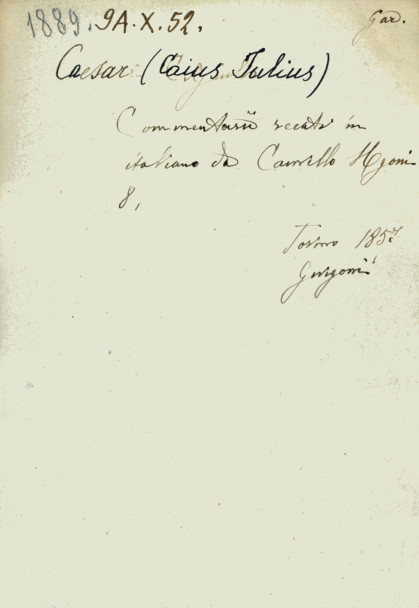 1889. 9A.X.52.
Gar.
Caesar (Caius Julius)
Commentarii recati in
italiano da Camillo Ugoni
8,
Torino 185